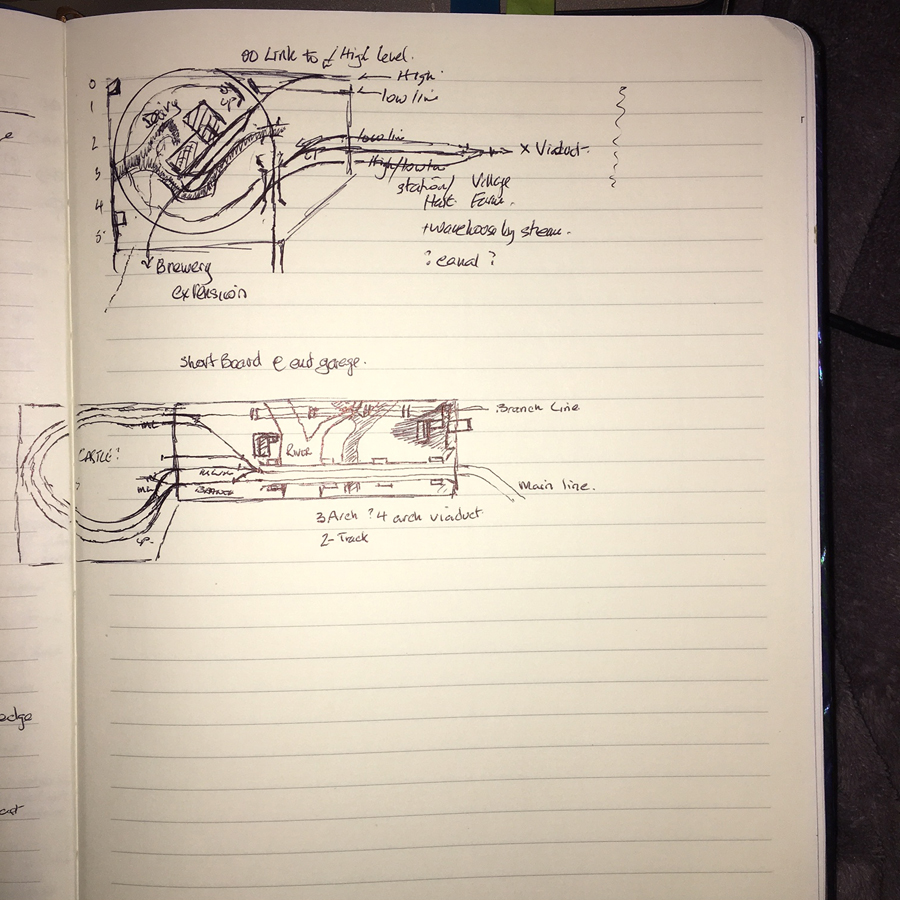 OO Link to High Level.
High.
low line
0
1
2
3
4
5
Dairy
UP
low line
x Viaduct.
High/low line
station/ Village
Halt Farm.
+warehouse by stream.
? canal ?
Brewery
extension
Short Board e out garage.
Branch Line
ML
CASTLE?
RIVER
ML
BRANCH
Main line.
UP
3 Arch ? 4 arch viaduct
2-Track
edge